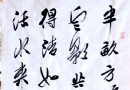 半畝方
雲影共
得清如
活水来